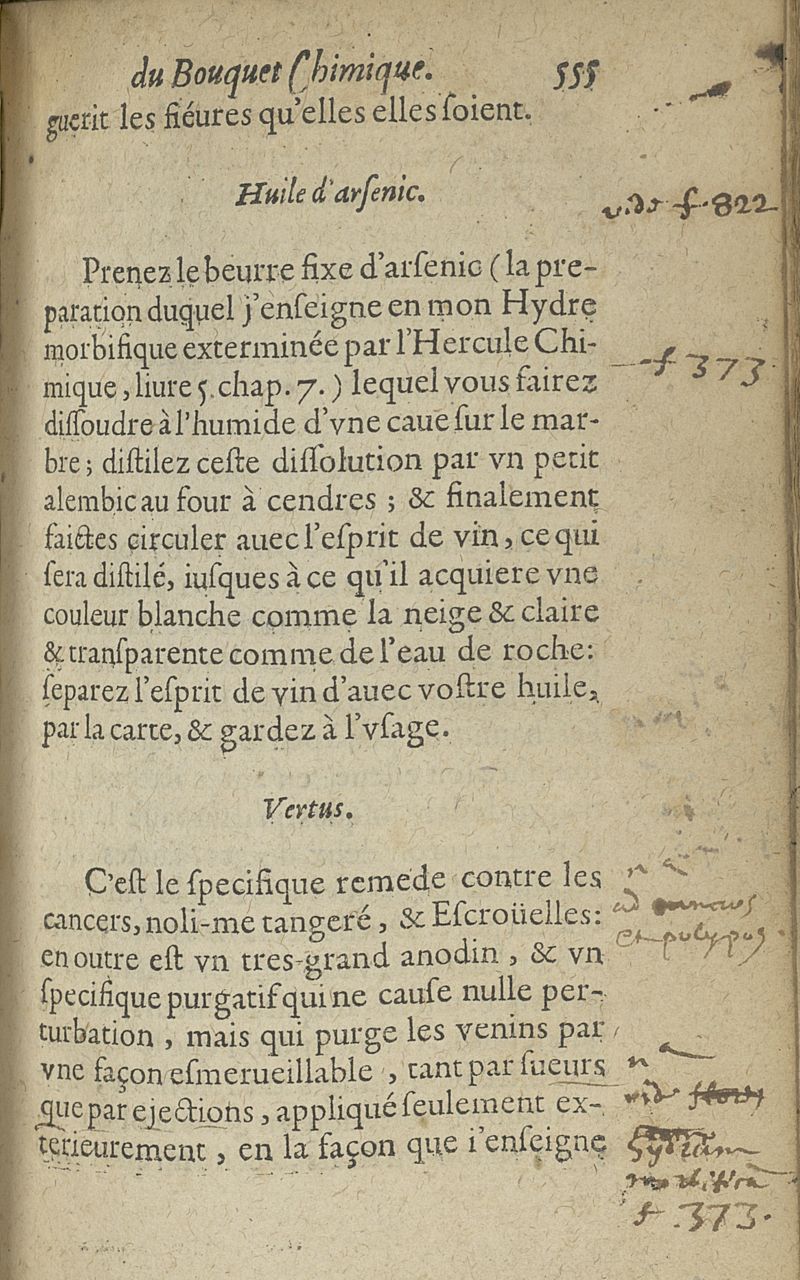 du Bouquet Chimique. 555
guerit les fiéures qu'elles elles ſoient.
Huile d'arſenic.
Prenez le beurre fixe d'arſenic (la pre-
paration duquel j'enſeigne en mon Hydre
morbifique exterminée par l'Hercule Chi-
mique, liure 5. chap. 7.) lequel vous fairez
diſſoudre à l'humide d'vne caue ſur le mar-
bre; diſtilez ceſte diſſolution par vn petit
alembic au four à cendres ; & finalement
faictes circuler auec l'eſprit de vin, ce qui
ſera diſtilé, iuſques à ce qu'il acquiere vne
couleur blanche comme la neige & claire
& tranſparente comme de l'eau de roche:
ſeparez l'eſprit de vin d'auec voſtre huile,
par la carte, & gardez à l'vſage.
Vertus.
C'eſt le ſpecifique remede contre les
cancers, noli-me tangeré, & Eſcroüelles:
en outre eſt vn tres-grand anodin, & vn
ſpecifique purgatif qui ne cauſe nulle per-
turbation, mais qui purge les venins par
vne façon eſmerueillable, tant par ſueurs
que par ejections, appliqué ſeulement ex-
terieurement, en la façon que i'enſeigne
f. 822
f 373
et polypus
f. 373.